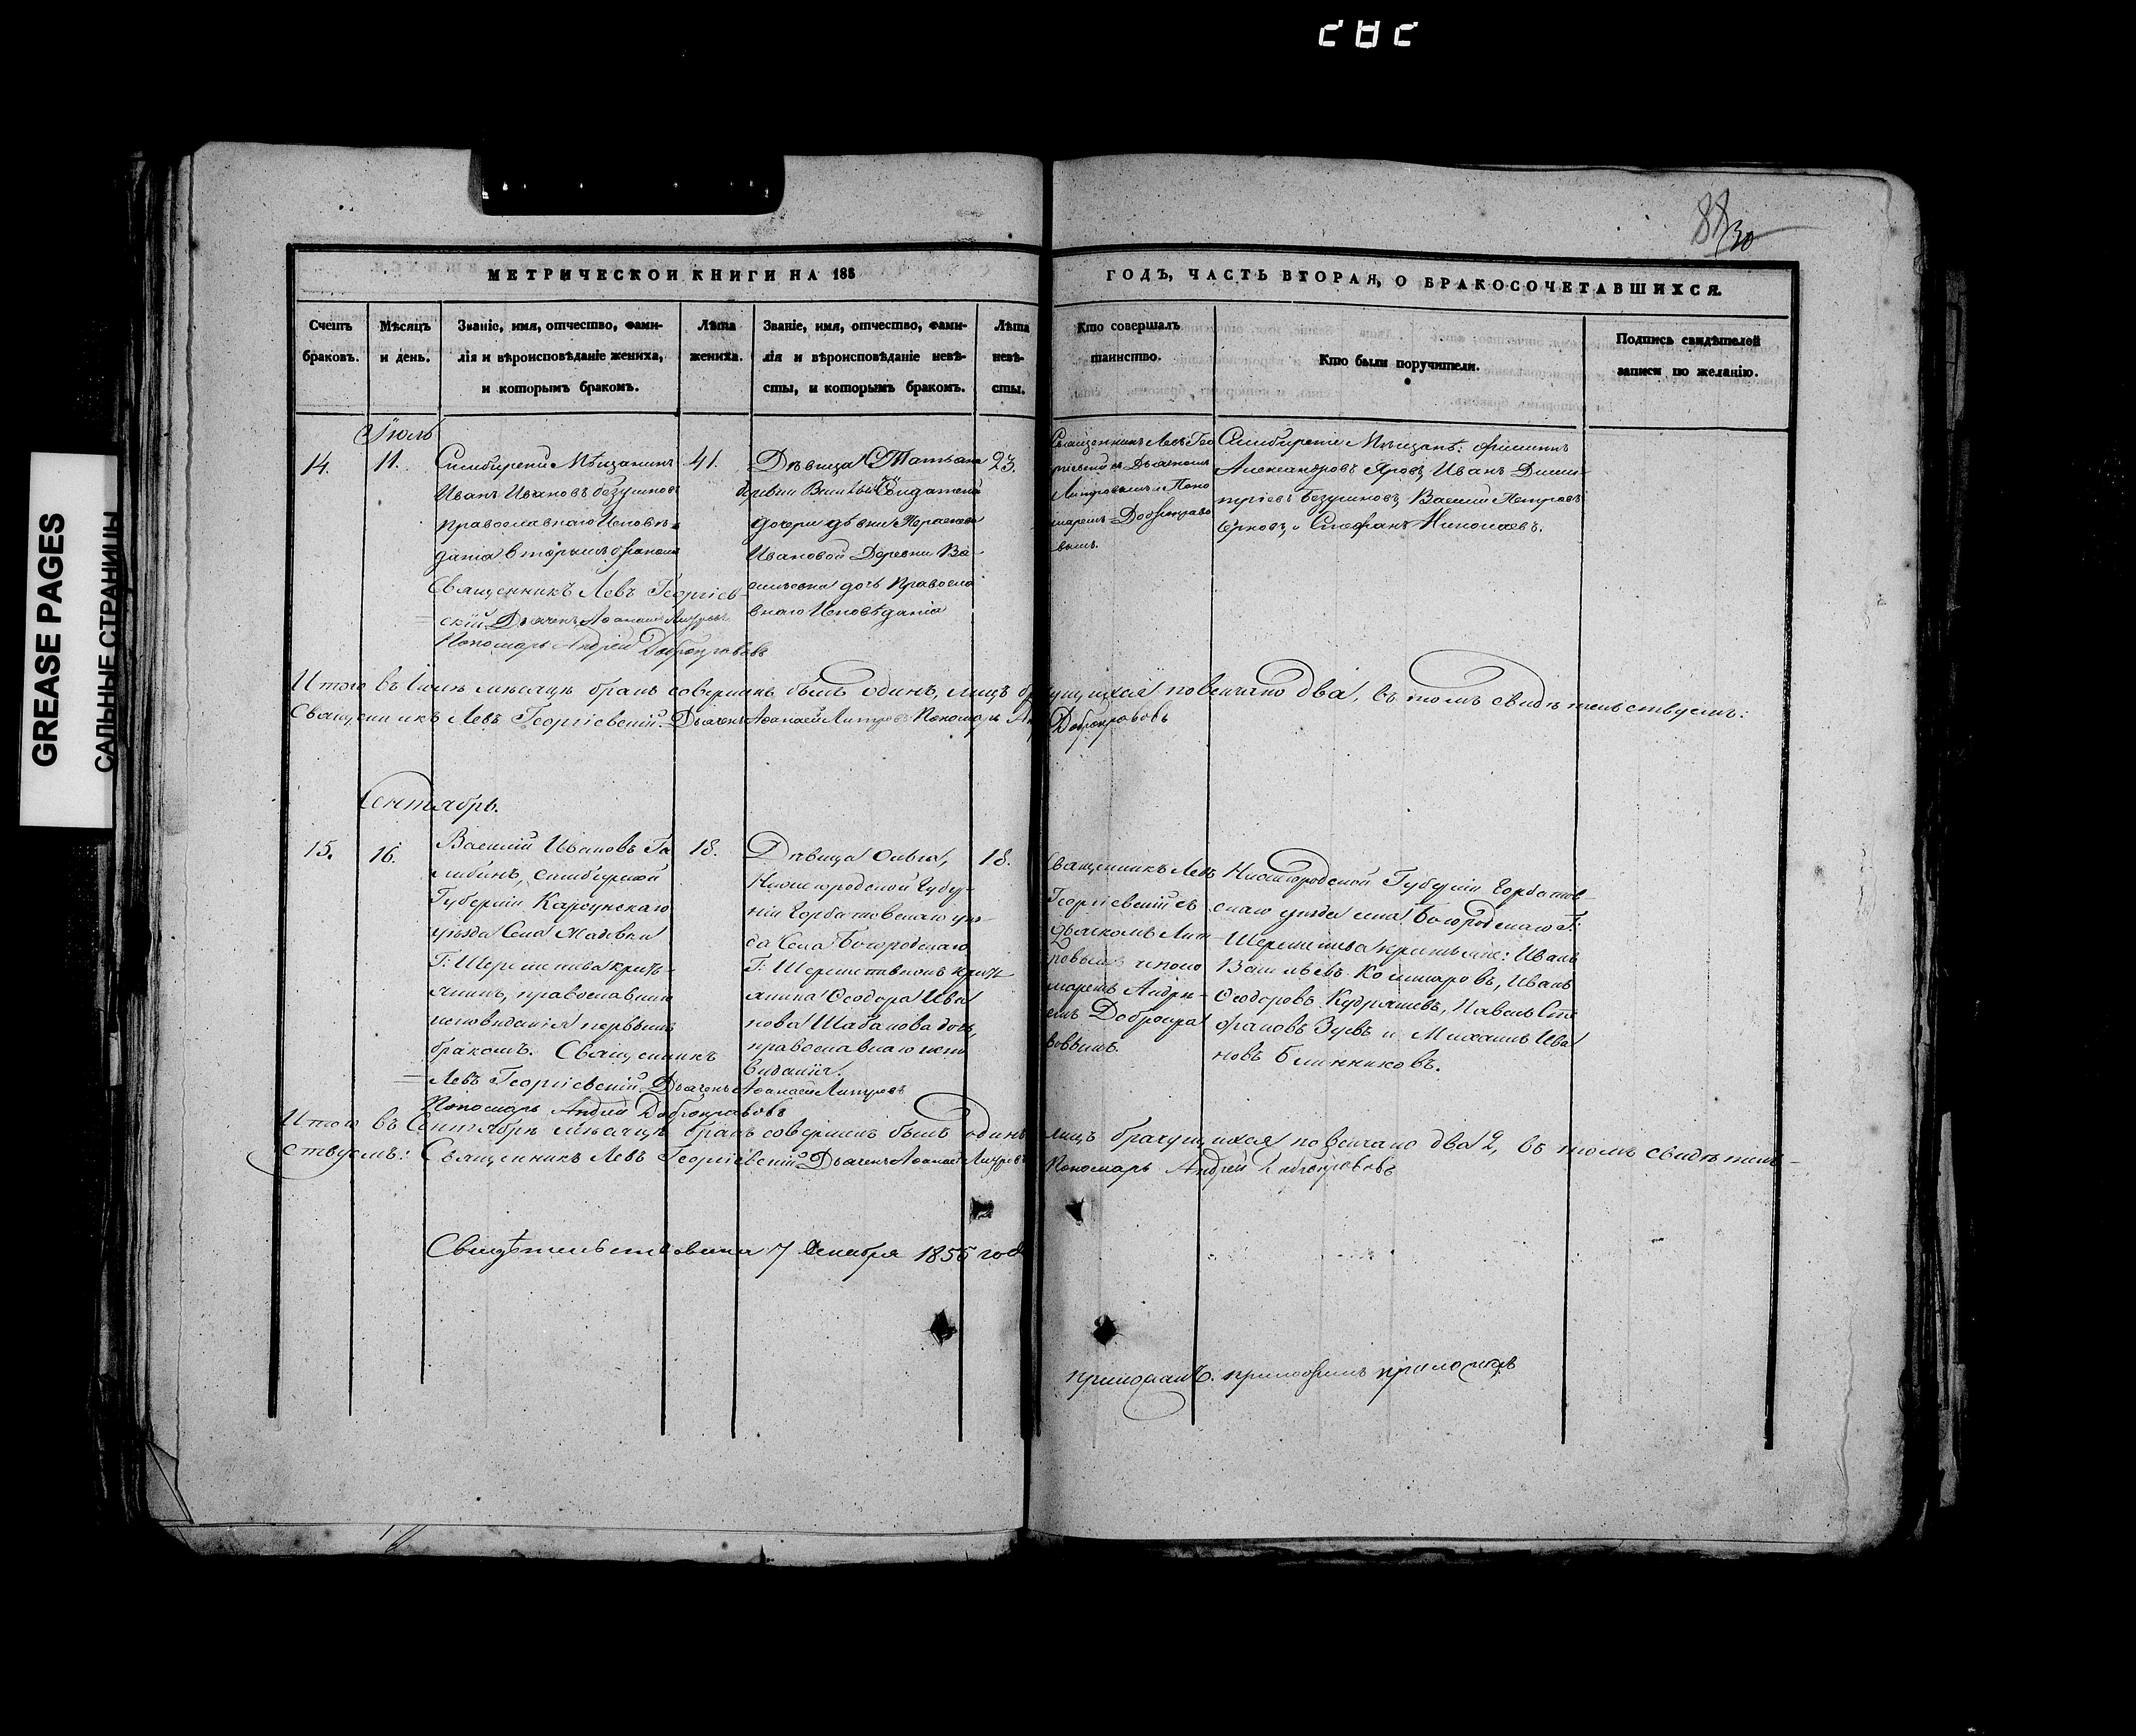 282
88
30
GREASE PAGES
САЛЬНЫЕ СТРАНИЦЫ
МЕТРИЧЕСКОЙ КНИГИ НА 185
ГОДЪ, ЧАСТЬ ВТОРАЯ, О БРАКОСОЧЕТАВШИХСЯ.
Счетъ
браковъ.
Мѣсяцъ
и день.
Званіе, имя, отчество, фами-
лія и вѣроисповѣданіе жениха,
и которымъ бракомъ.
Лѣта
жениха.
Званіе, имя, отчество, фами-
лія и вѣроисповѣданіе невѣ-
сты, и которымъ бракомъ.
Лѣта
невѣ-
сты.
Кто совершалъ
таинство.
Кто были поручители.
Подпись свидѣтелей
записи по желанію.
Іюль
14.
11.
Симбирскій Мѣщанинъ
Иванъ Ивановъ Безушковъ
Православнаго Исповѣ-
данія вторымъ бракомъ
Священникъ Левъ Георгіев-
скій Дьячекъ Афанасій
Пономарь Андрей Доброправовъ
41.
Дѣвица Татьяна
дочери дѣвки
Ивановой Деревни Ва-
дочь Правосла
внаго Исповѣданія
23.
Священникъ Левъ Гео
ргіевскій съ Дьячкомъ
и Поно
маремъ Доброправо
вымъ.
Симбирскіе Мѣщане: Филиппъ
Александровъ Яровъ, Иванъ Дими-
тріевъ Безушковъ, Василій Петровъ
и Стефанъ Николаевъ.
Итого въ Іюлѣ мѣсяцѣ бракъ совершенъ былъ одинъ, лицъ бра
чущихся повѣнчано два, въ томъ свидѣтельствуемъ:
Священникъ Левъ Георгіевскій Дьячекъ Афанасій Пономарь
Доброправовъ
Сентябрь.
15.
16.
Василій Ивановъ Га
либинъ, Симбирской
Губерніи Карсунскаго
уѣзда Села Жадовки
Г: Шереметева кресть-
янинъ, православнаго
исповѣданія первымъ
бракомъ. Священникъ
Левъ Георгіевскій Дьячекъ Афанасій
Пономарь Андрей Доброправовъ
18.
Дѣвица Ольга,
Нижегородской Губер-
ніи Горбатовскаго уѣз-
да Села Богородскаго
Г: Шереметева крестьянина Феодора Ива
нова Шабанова дочь,
православнаго испо
вѣданія.
18.
Священникъ Левъ
Георгіевскій съ
дьячкомъ
и поно
маремъ Андре-
емъ Добропра
вовымъ.
Нижегородской Губерніи Горбатов-
скаго уѣзда села Богородскаго Г:
Шереметева крестьяне: Иванъ
Васильевъ Комаровъ, Иванъ
Феодоровъ Кудряшевъ, Павелъ Сте
фановъ Зуевъ и Михаилъ Ива
новъ Блинниковъ.
Итого въ Сентябрѣ мѣсяцѣ бракъ совершенъ былъ одинъ
лицъ брачущихся повѣнчано два 2, въ томъ свидѣтель-
ствуемъ: Священникъ Левъ Георгіевскій Дьячекъ Афанасій
Пономарь Андрей Доброправовъ
Свидѣтельствована 7 Декабря 1855 года